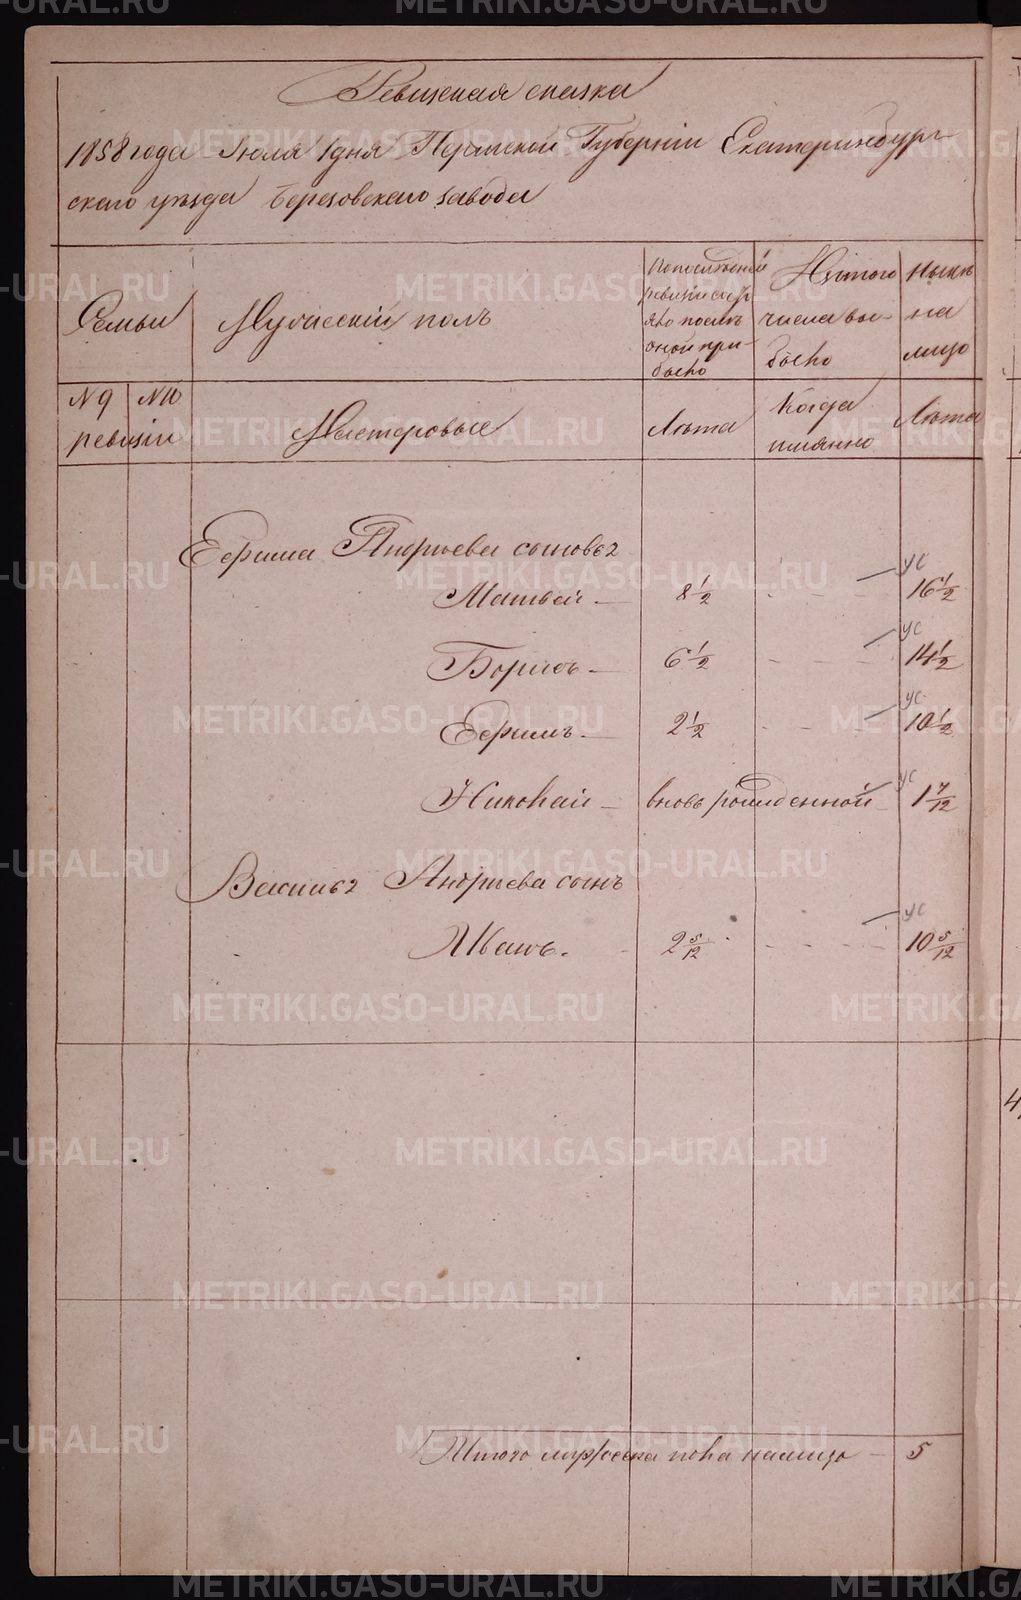 Ревизская сказка
1858 года Іюля 1 дня Пермской Губерніи Екатеринбург-
скаго уѣзда Березовскаго завода
Семьи
Мужескій полъ
По последней
ревизіи сос-
яло и послѣ
оной при-
было
Изъ того
числа вы-
было
Нынѣ
на
лицо
№ 9 № 10
ревизіи
Мастеровые
Лѣта
Когда
имянно
Лѣта
Ефима Андреева сыновья
Матвей 8 1/2 ус 16 1/2
Борисъ 6 1/2 ус 14 1/2
Ефимъ 2 1/2 ус 10 1/2
Николай вновь рожденной ус 1 7/12
Василья Андреева сынъ
Иванъ. 2 5/12 ус 10 5/12
Итого мужеска пола налицо 5
METRIKI.GASO-URAL.RU